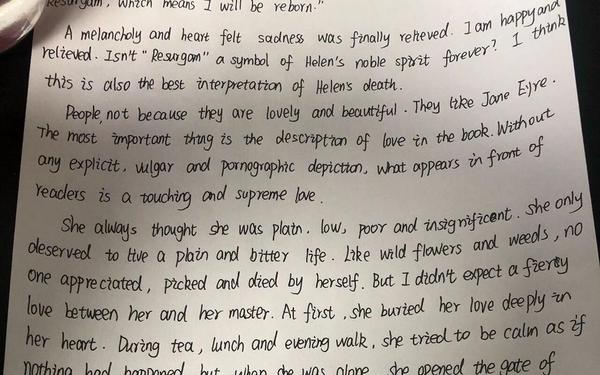 Resurgam, which means I will be reborn."
A melancholy and heart felt sadness was finally relieved. I am happy and
relieved. Isn't "Resurgam" a symbol of Helen's noble spirit forever? I think
this is also the best interpretation of Helen's death.
People, not because they are lovely and beautiful. They like Jane Eyre.
The most important thing is the description of love in the book. Without
any explicit, vulgar and pornographic depiction, what appears in front of
readers is a touching and supreme love.
She always thought she was plain, low, poor and insignificant. She only
deserved to live a plain and bitter life. Like wild flowers and weeds, no
one appreciated, picked and died by herself. But I didn't expect a fiery
love between her and her master. At first, she buried her love deeply in
her heart. During tea, lunch and evening walk, she tried to be calm as if
nothing had happened, but when she was alone, she opened the gate of